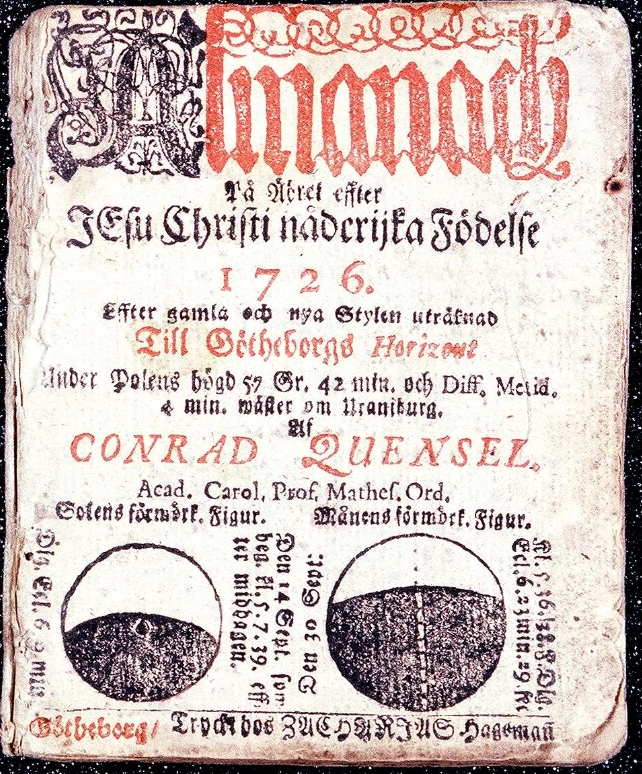 Almanach
På Åhret effter
JEsu Christi nåderijka Födelse
1726.
Effter gamla och nya Stylen uträknad
Till Götheborgs Horizont
Under Polens högd 57 Gr. 42 min. och Diff. Merid.
4 min. wäster om Uraniburg.
Af
CONRAD QUENSEL.
Acad. Carol. Prof. Mathes. Ord.
Solens förmörk. Figur. Månens förmörk. Figur.
Dig. Ecl. 6. 9. min
Den 14 Sept. som
beg. kl. 5. 7. 39. eff-
ter middagen.
Den 30 Sept:
Kl. 5. Dig.
Ecl. 6. 23 min. 29 sec
Götheborg/ Tryckt hos ZACHARIAS Hagemañ